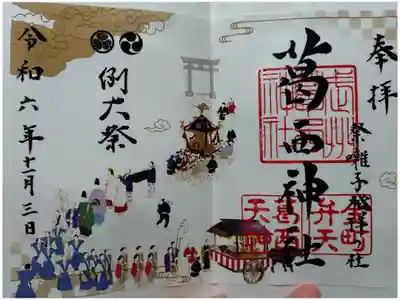 奉拝
祭囃子発祥乃社
葛西神社
金町
弁天
葛西
天神
例大祭
令和六年十一月三日